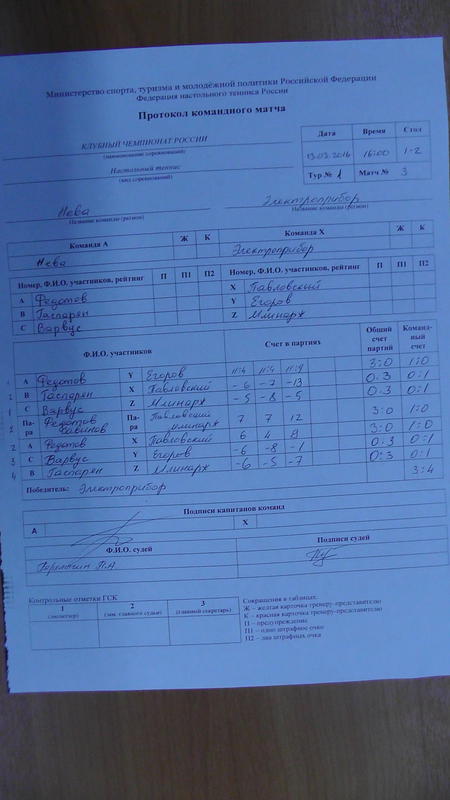 Министерство спорта, туризма и молодёжной политики Российской Федерации
Федерация настольного тенниса России
Протокол командного матча
КЛУБНЫЙ ЧЕМПИОНАТ РОССИИ
(наименование соревнований)
Настольный теннис
(вид соревнований)
Дата Время Стол
13.03.2016 16:00 1-2
Тур № 1 Матч № 3
Нева Электроприбор
Название команды (регион) Название команды (регион)
Команда А Ж К Команда X Ж К
Нева Электроприбор
Номер, Ф.И.О. участников, рейтинг П П1 П2 Номер, Ф.И.О. участников, рейтинг П П1 П2
А Федотов X Павловский
В Гаспарян Y Егоров
С Варвус Z Млинарж
Ф.И.О. участников Счет в партиях Общий счет партий Команд-ный счет
А Федотов Y Егоров 11:4 11:4 11:9 3:0 1:0
В Гаспарян X Павловский -6 -7 -13 0:3 0:1
С Варвус Z Млинарж -5 -8 -5 0:3 0:1
Па-ра Федотов Па-ра Павловский Млинарж 7 7 12 3:0 1:0
А Федотов X Павловский 6 4 9 3:0 1:0
С Варвус Y Егоров -6 -8 -1 0:3 0:1
В Гаспарян Z Млинарж -6 -5 -7 0:3 0:1
Победитель: Электроприбор 3:4
Подписи капитанов команд
А X
Ф.И.О. судей Подписи судей
Контрольные отметки ГСК
1 2 3
(секретарь) (зам. главного судьи) (главный секретарь)
Сокращения в таблицах:
Ж – желтая карточка тренеру-представителю
К – красная карточка тренеру-представителю
П – предупреждение
П1 – одно штрафное очко
П2 – два штрафных очка